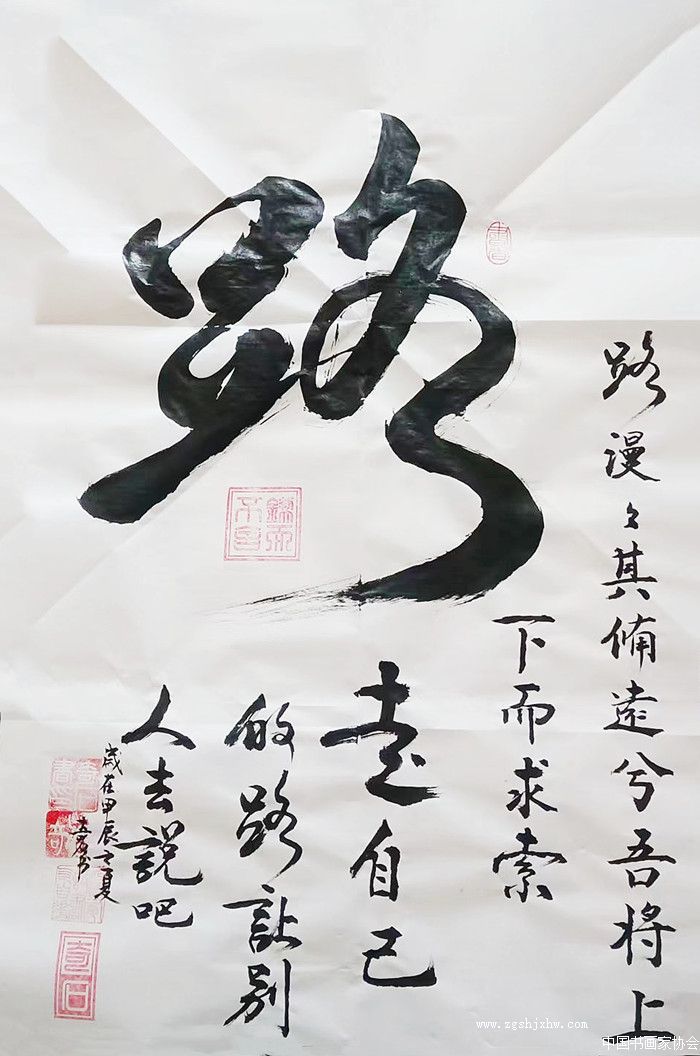 路
路漫々其脩遠兮吾将上
下而求索
走自己
的路让别
人去説吧
歳在甲辰之夏
鍥而不舍
奇石
www.zgshjxhw.com
中国书画家协会